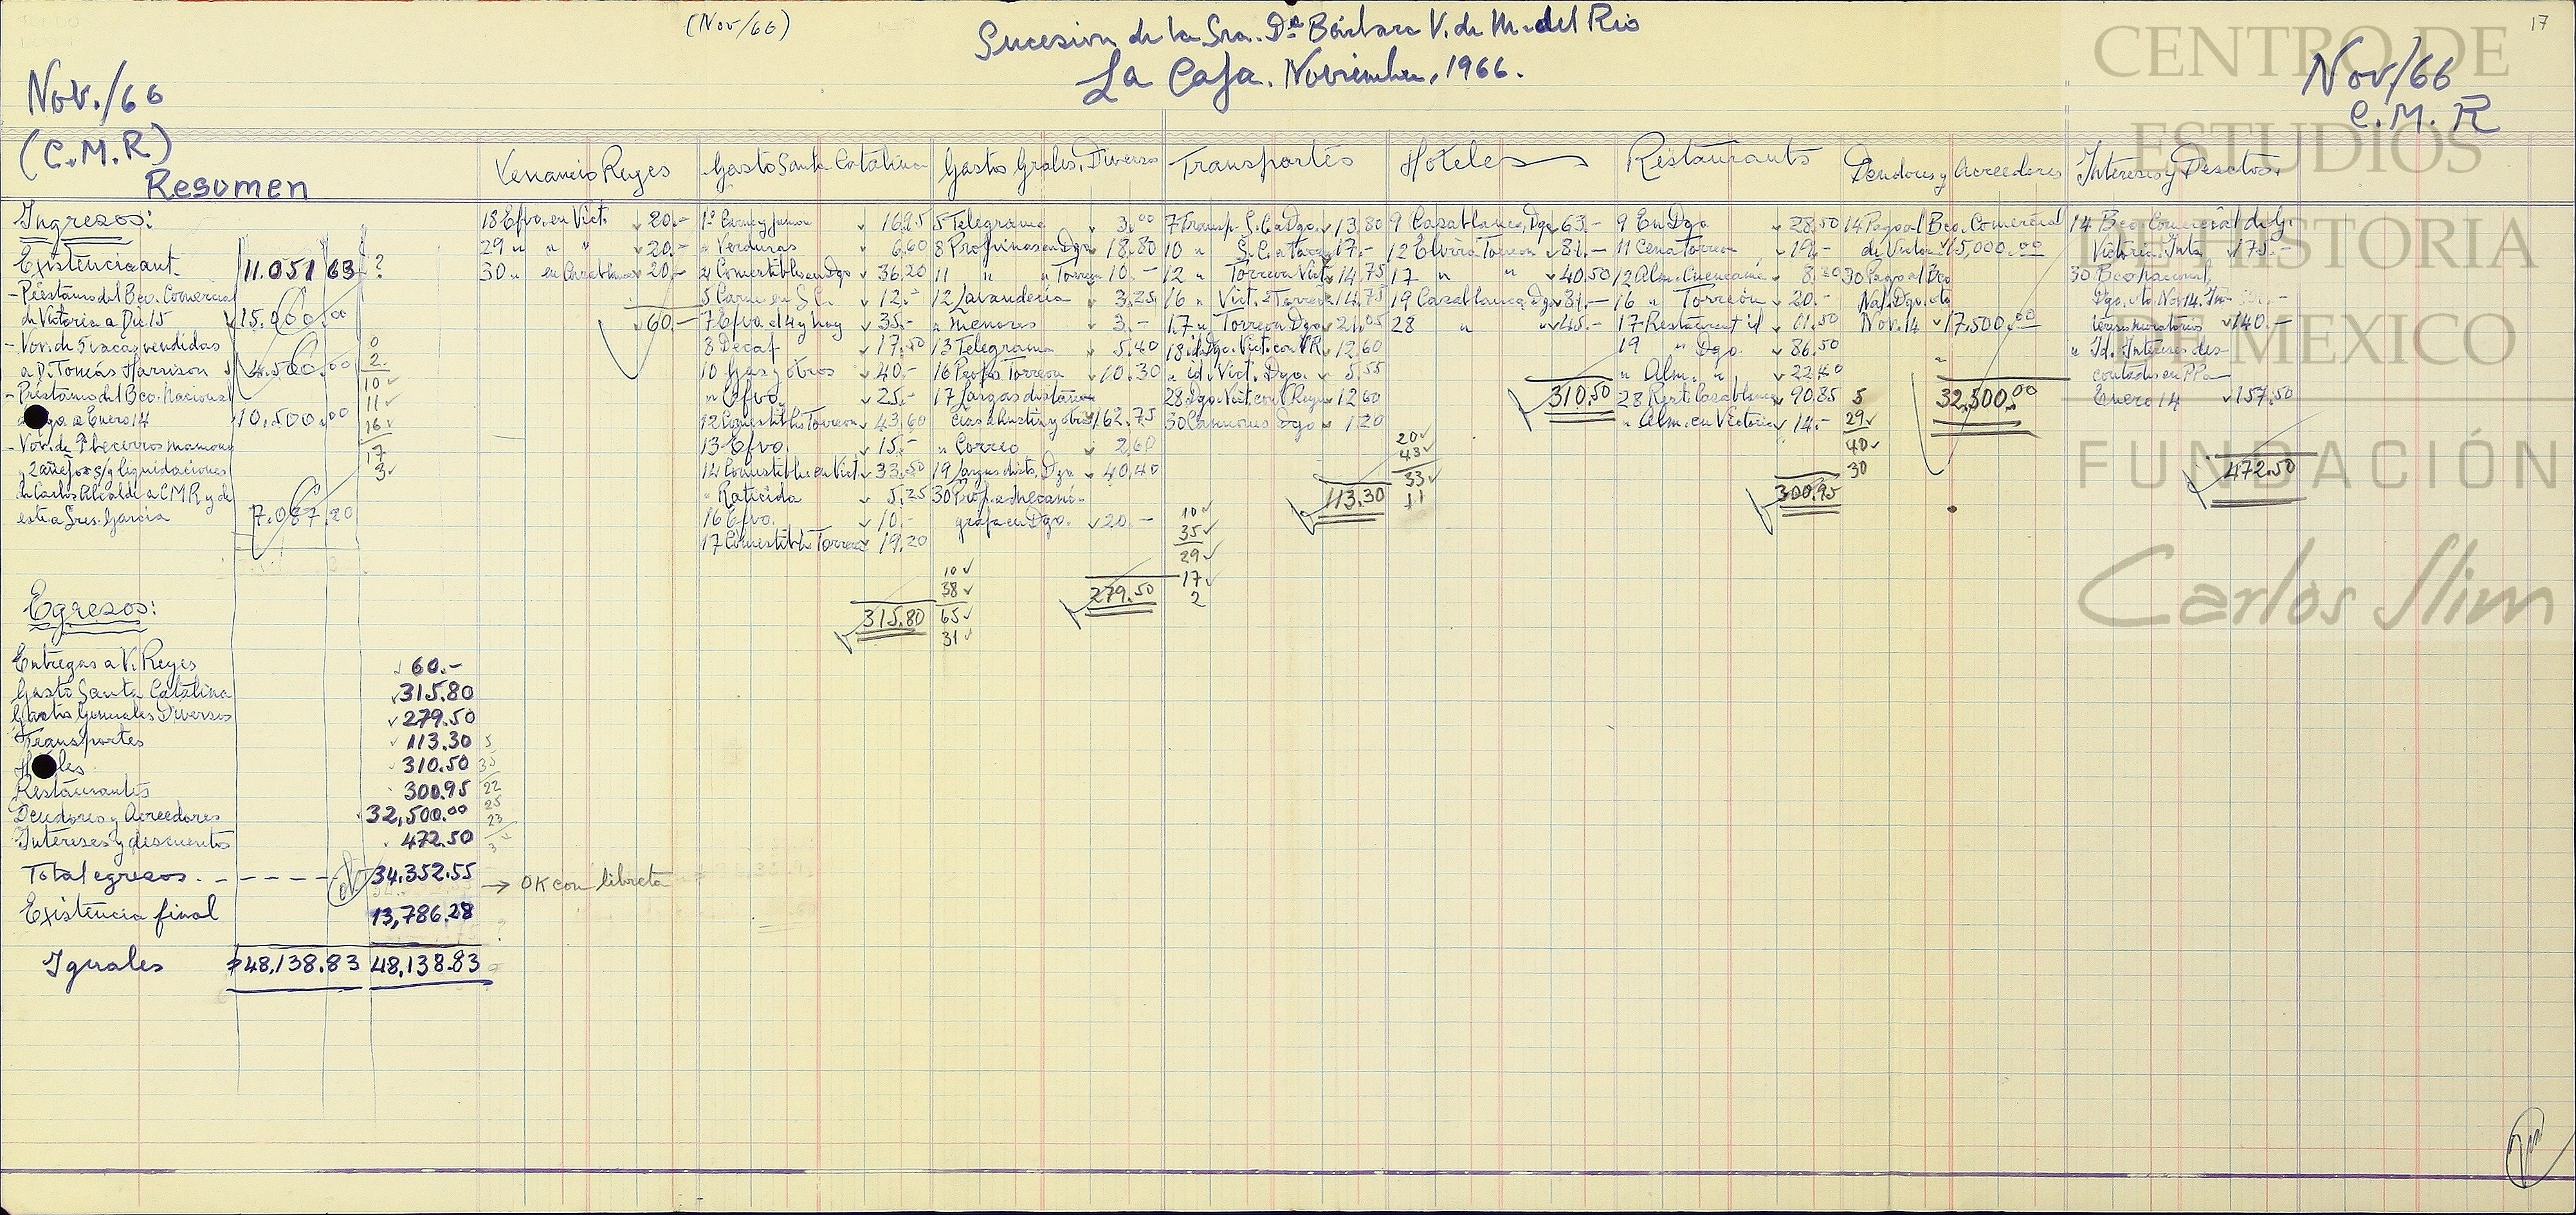 (Nov/66)
Sucesion de la Sra. Dª Bárbara V. de M. del Rio
17
La Caja. Noviembre, 1966.
Nov./66
(C.M.R)
Nov/66
C.M.R
CENTRO DE
ESTUDIOS
DE HISTORIA
DE MEXICO
FUNDACIÓN
Carlos Slim
Resumen
Ingresos:
Existencia ant. 11.051 63 ?
- Préstamo del Bco. Comercial
de Victoria a Dic 15 15.000.00
- Vor. de 5 vacas vendidas
a D. Tomás Harrison 4.500.00
- Préstamo del Bco. Nacional
a Enero 14 10,500.00
- Vor. de 9 becerros mamones
y 2 añejos s/g liquidaciones
de Carlos Alcalde a CMR y de
este a Sres. García 7.087.20
0
2
10
11
16
17
3
Egresos:
Entregas a V. Reyes 60.-
Gasto Santa Catalina 315.80
Gastos Generales Diversos 279.50
Transportes 113.30
310.50
Restaurantes 300.95
Deudores y Acreedores 32,500.00
Intereses y descuentos 472.50
5
35
22
25
23
3
Total egresos. - - - - - 34.352.55 → OK con libreta
Existencia final 13,786.28
Iguales 48,138.83 48,138.83
Venancio Reyes
18 Efvo. en Vict. 20.-
29 " " " 20.-
30 " en Casablanca 20.-
60.-
Gasto Santa Catalina
1º Carne y jamon 16.95
" Verduras 6.60
2 Comestibles en Dgo 36.20
5 Carne en S.C. 12.-
7 Efvo. el 4 y hoy 35.-
8 Decaf 17.50
10 Gas y otros 40.-
" Efvo. 25.-
12 Comestibles Torreon 43.60
13 Efvo. 15.-
14 Comestibles en Vict. 33.50
" Raticida 5.25
16 Efvo. 10.-
17 Comestibles Torreon 19.20
315.80
Gastos Grales. Diversos
5 Telegrama 3.00
8 Propinas en Dgo 18.80
11 " " Torreon 10.-
12 Lavanderia 3.25
" Menores 3.-
13 Telegrama 5.40
16 Props. Torreon 10.30
17 Largas distan-
cias a Austin y otros 162.75
" Correo 2.60
19 Largas dists. Dgo 40.40
30 Prop. a mecanó-
grafa en Dgo. 20.-
279.50
10
38
65
31
Transportes
7 Transp. S.C. a Dgo. 13.80
10 " S.C. a Torreon 17.-
12 " Torreon Vict. 14.75
16 " Vict. a Torreon 14.75
17 " Torreon Dgo 21.05
18 id. Dgo. Vict. con VR. 12.60
" id. Vict. Dgo. 5.55
28 Dgo. Vict. con V. Reyes 12.60
30 Camiones Dgo 1.20
113.30
10
35
29
17
2
Hoteles
9 Casablanca, Dgo 63.-
12 Elvira Torreon 81.-
17 " " 40.50
19 Casablanca, Dgo 81.-
28 " " 45.-
310.50
20
43
33
11
Restaurants
9 En Dgo 28.50
11 Cena Torreon 19.-
12 Alm. Cuencamé 8.20
16 " Torreón 20.-
17 Restaurant id 11.50
19 " Dgo. 86.50
" Alm. " 22.40
28 Rest. Casablanca 90.85
" Alm. en Victoria 14.-
300.95
5
29
40
30
Deudores y Acreedores
14 Pago al Bco. Comercial
de Victoria 15,000.00
30 Pago al Bco
Nal. Dgo. vto
Nov. 14 17.500.00
32,500.00
Intereses y Desctos.
14 Bco Comercial de G.
Victoria. Ints 175.-
30 Bco Nacional,
Dgo. vto Nov 14. In-
tereses moratorios 140.-
" Id. Intereses des-
contados en PPa
Enero 14 157.50
472.50